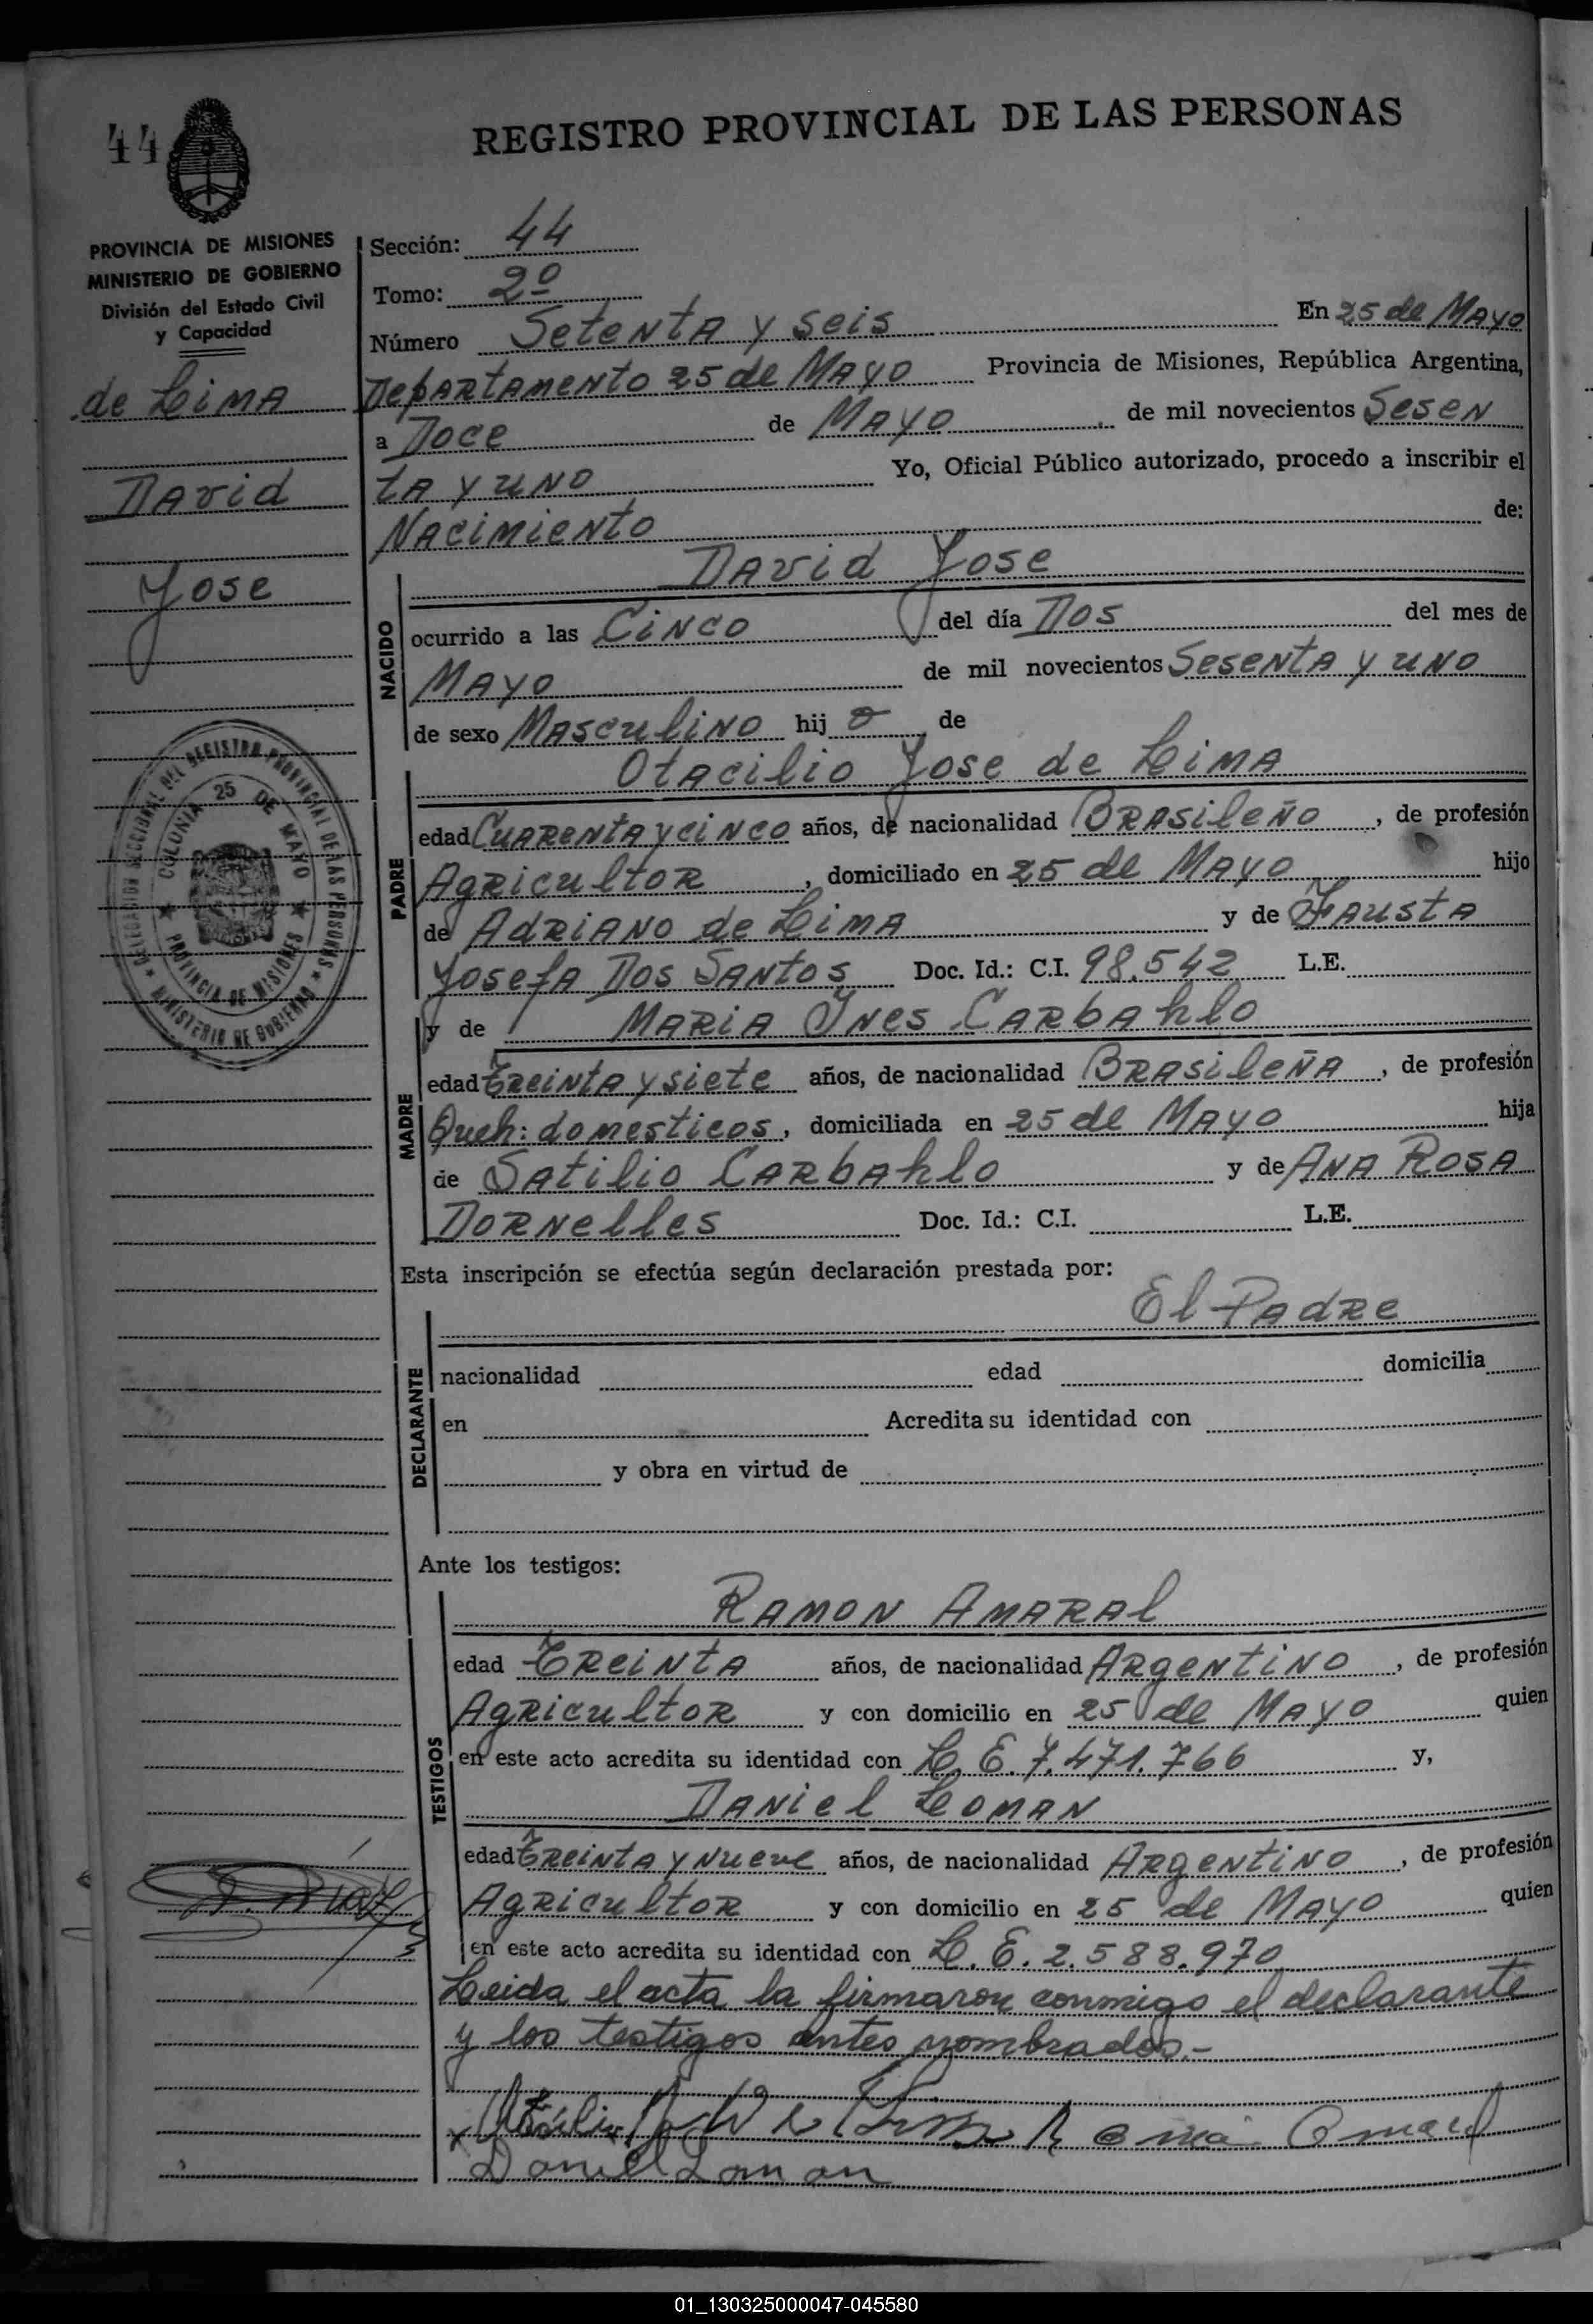 44
REGISTRO PROVINCIAL DE LAS PERSONAS
PROVINCIA DE MISIONES
MINISTERIO DE GOBIERNO
División del Estado Civil
y Capacidad
de Lima
David
Jose
DELEGACION SECCIONAL DEL REGISTRO PROVINCIAL DE LAS PERSONAS
MINISTERIO DE GOBIERNO
COLONIA 25 DE MAYO
PROVINCIA DE MISIONES
Sección: 44
Tomo: 2º
Número Setenta y seis En 25 de Mayo
Departamento 25 de Mayo Provincia de Misiones, República Argentina,
a Doce de Mayo de mil novecientos Sesen
ta y uno Yo, Oficial Público autorizado, procedo a inscribir el
Nacimiento de:
David Jose
NACIDO
ocurrido a las Cinco del día Dos del mes de
Mayo de mil novecientos Sesenta y uno
de sexo Masculino hij o de
Otacilio Jose de Lima
PADRE
edad Cuarenta y cinco años, de nacionalidad Brasileño, de profesión
Agricultor, domiciliado en 25 de Mayo hijo
de Adriano de Lima y de Fausta
Josefa Dos Santos Doc. Id.: C.I. 98.542 L.E.
y de Maria Ines Carbahlo
MADRE
edad Treinta y siete años, de nacionalidad Brasileña, de profesión
Queh: domesticos, domiciliada en 25 de Mayo hija
de Satilio Carbahlo y de Ana Rosa
Dornelles Doc. Id.: C.I. L.E.
Esta inscripción se efectúa según declaración prestada por:
El Padre
DECLARANTE
nacionalidad edad domicilia
en Acredita su identidad con
y obra en virtud de
Ante los testigos:
Ramon Amaral
TESTIGOS
edad Treinta años, de nacionalidad Argentino, de profesión
Agricultor y con domicilio en 25 de Mayo quien
en este acto acredita su identidad con L.E. 7.471.766 y,
Daniel Loman
edad Treinta y nueve años, de nacionalidad Argentino, de profesión
Agricultor y con domicilio en 25 de Mayo quien
en este acto acredita su identidad con L.E. 2.588.970
Leida el acta la firmaron conmigo el declarante
y los testigos antes nombrados.-
Daniel Loman
01_130325000047-045580